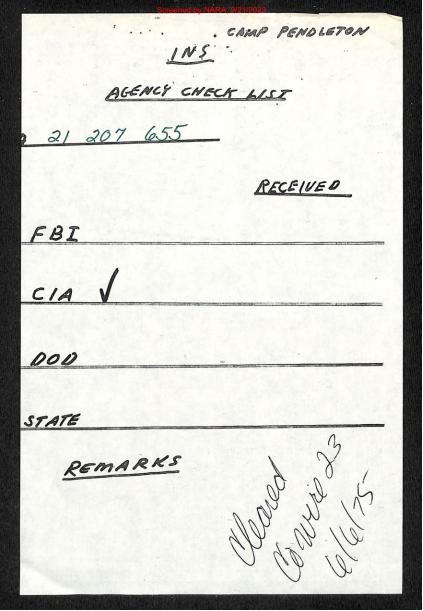 Screened by NARA, 9/21/2023
CAMP PENDLETON
INS
AGENCY CHECK LIST
21 207 655
RECEIVED
FBI
CIA ✓
DOD
STATE
REMARKS
Cleared
CoWire 23
6/6/75